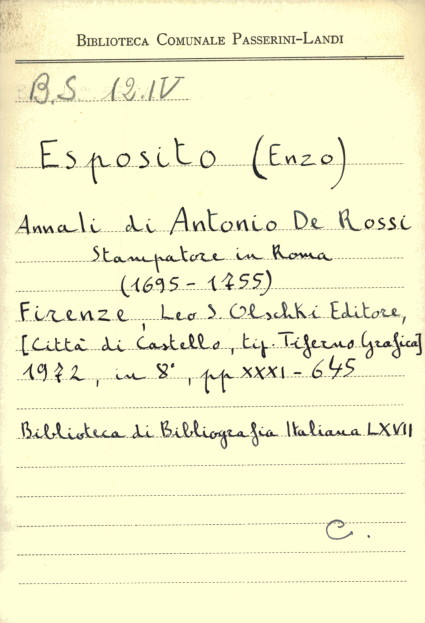 Biblioteca Comunale Passerini-Landi
B.S. 12.IV
Esposito (Enzo)
Annali di Antonio De Rossi
Stampatore in Roma
(1695 - 1755)
Firenze, Leo S. Olschki Editore,
[Città di Castello, tip. Tiferno Grafica]
1972, in 8°, pp XXXI - 645
Biblioteca di Bibliografia Italiana LXVII
C.